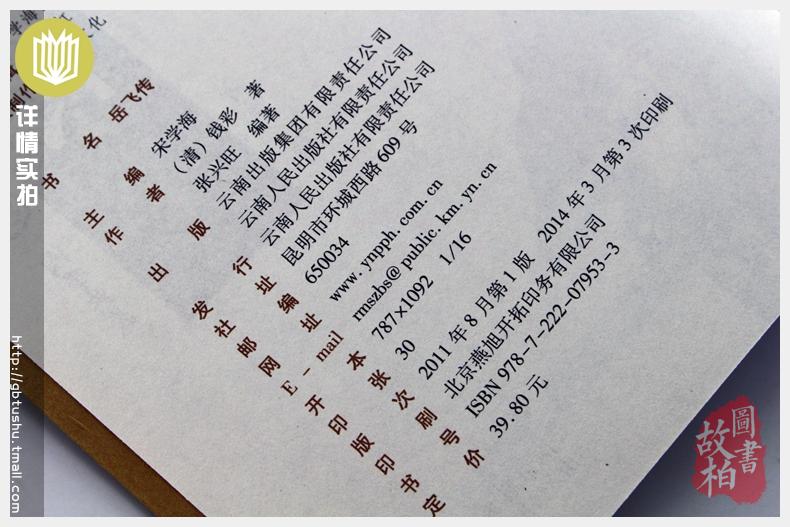 书 名 岳飞传
主 编 宋学海
作 者 （清）钱彩 著
张兴旺 编著
出 版 云南出版集团有限责任公司
云南人民出版社有限责任公司
发 行 云南人民出版社有限责任公司
社 址 昆明市环城西路609号
邮 编 650034
网 址 www.ynpph.com.cn
E-mail rmszbs@public.km.yn.cn
开 本 787×1092 1/16
印 张 30
版 次 2011年8月第1版 2014年3月第3次印刷
印 刷 北京燕旭开拓印务有限公司
书 号 ISBN 978-7-222-07953-3
定 价 39.80元
详情实拍
http://gbtushu.tmall.com
故柏
圖書